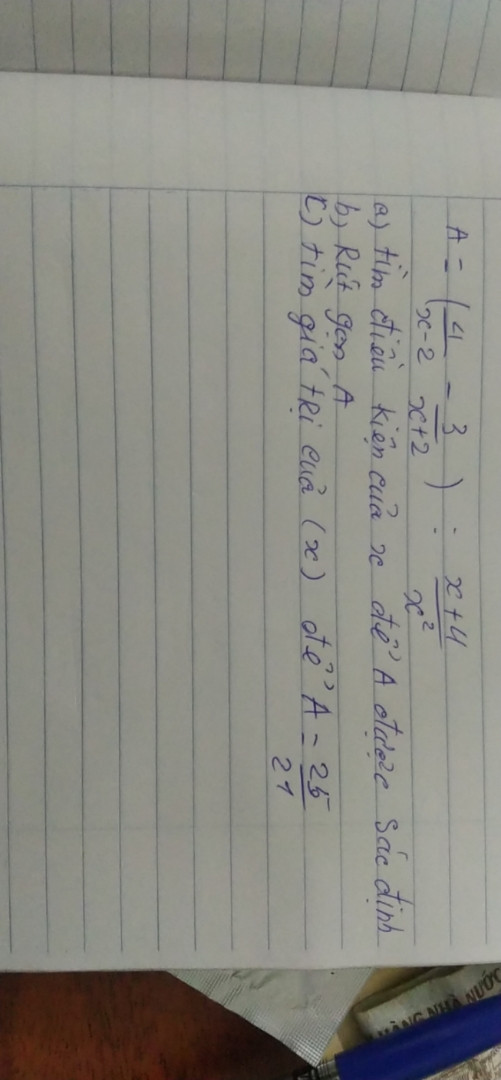 A = (4/x-2 - 3/x+2) : x+4/x²
a) tìm điều kiện của x để A được sác định
b) Rút gọn A
c) tìm giá trị của (x) để A = 25/21
NG NHÀ NƯỚC